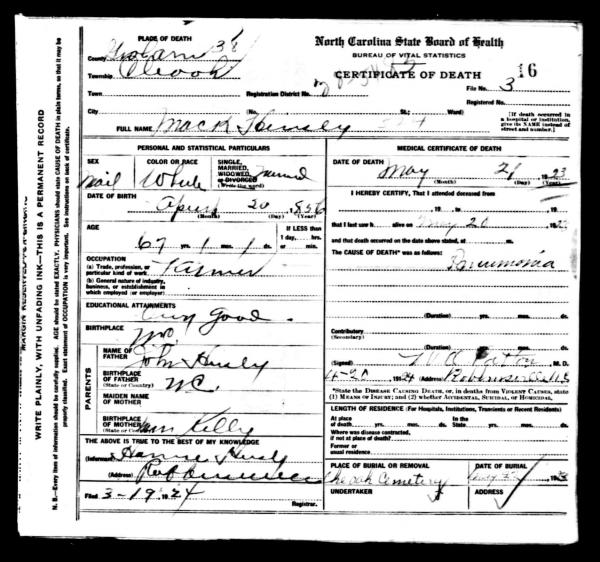 PLACE OF DEATH
County Graham 38
Township Cheoah
Town
City
North Carolina State Board of Health
BUREAU OF VITAL STATISTICS
CERTIFICATE OF DEATH
16
Registration District No.
File No. 3
Registered No.
(No. St.; Ward)
[If death occurred in a hospital or institution, give its NAME instead of street and number.]
FULL NAME Mack Hensley
PERSONAL AND STATISTICAL PARTICULARS
SEX
COLOR OR RACE
SINGLE, MARRIED, WIDOWED, or DIVORCED (Write the word)
Mail White
DATE OF BIRTH
April 20 1856
(Month) (Day) (Year)
AGE
67 yrs. 1 mos. 1 ds.
IF LESS than 1 day, hrs. or min.
OCCUPATION
(a) Trade, profession, or particular kind of work Farmer
(b) General nature of industry, business, or establishment in which employed (or employer)
EDUCATIONAL ATTAINMENTS
Good
BIRTHPLACE
PARENTS
NAME OF FATHER John Hensley
BIRTHPLACE OF FATHER (State or Country) N.C.
MAIDEN NAME OF MOTHER
BIRTHPLACE OF MOTHER (State or Country)
Kelly
THE ABOVE IS TRUE TO THE BEST OF MY KNOWLEDGE
(Informant)
(Address)
Filed 3-19 1924
Registrar.
MEDICAL CERTIFICATE OF DEATH
DATE OF DEATH
May 21 1923
(Month) (Day) (Year)
I HEREBY CERTIFY, That I attended deceased from
19 to 19
that I last saw h alive on May 20 19
and that death occurred on the date above stated, at m.
The CAUSE OF DEATH* was as follows:
Pneumonia
(Duration) yrs. mos. ds.
Contributory
(Secondary)
(Duration) yrs. mos. ds.
(Signed) M.D.
192 (Address) Robbinsville
*State the DISEASE CAUSING DEATH, or, in deaths from VIOLENT CAUSES, state (1) MEANS OF INJURY; and (2) whether ACCIDENTAL, SUICIDAL, or HOMICIDAL.
LENGTH OF RESIDENCE (For Hospitals, Institutions, Transients or Recent Residents)
At place of death yrs. mos. ds. In the State yrs. mos. ds.
Where was disease contracted, if not at place of death?
Former or usual residence
PLACE OF BURIAL OR REMOVAL
DATE OF BURIAL
Cemetery
UNDERTAKER
ADDRESS
MARGIN RESERVED FOR BINDING
WRITE PLAINLY, WITH UNFADING INK—THIS IS A PERMANENT RECORD
N. B.—Every item of information should be carefully supplied. AGE should be stated EXACTLY. PHYSICIANS should state CAUSE OF DEATH in plain terms, so that it may be properly classified. Exact statement of OCCUPATION is very important. See instructions on back of certificate.